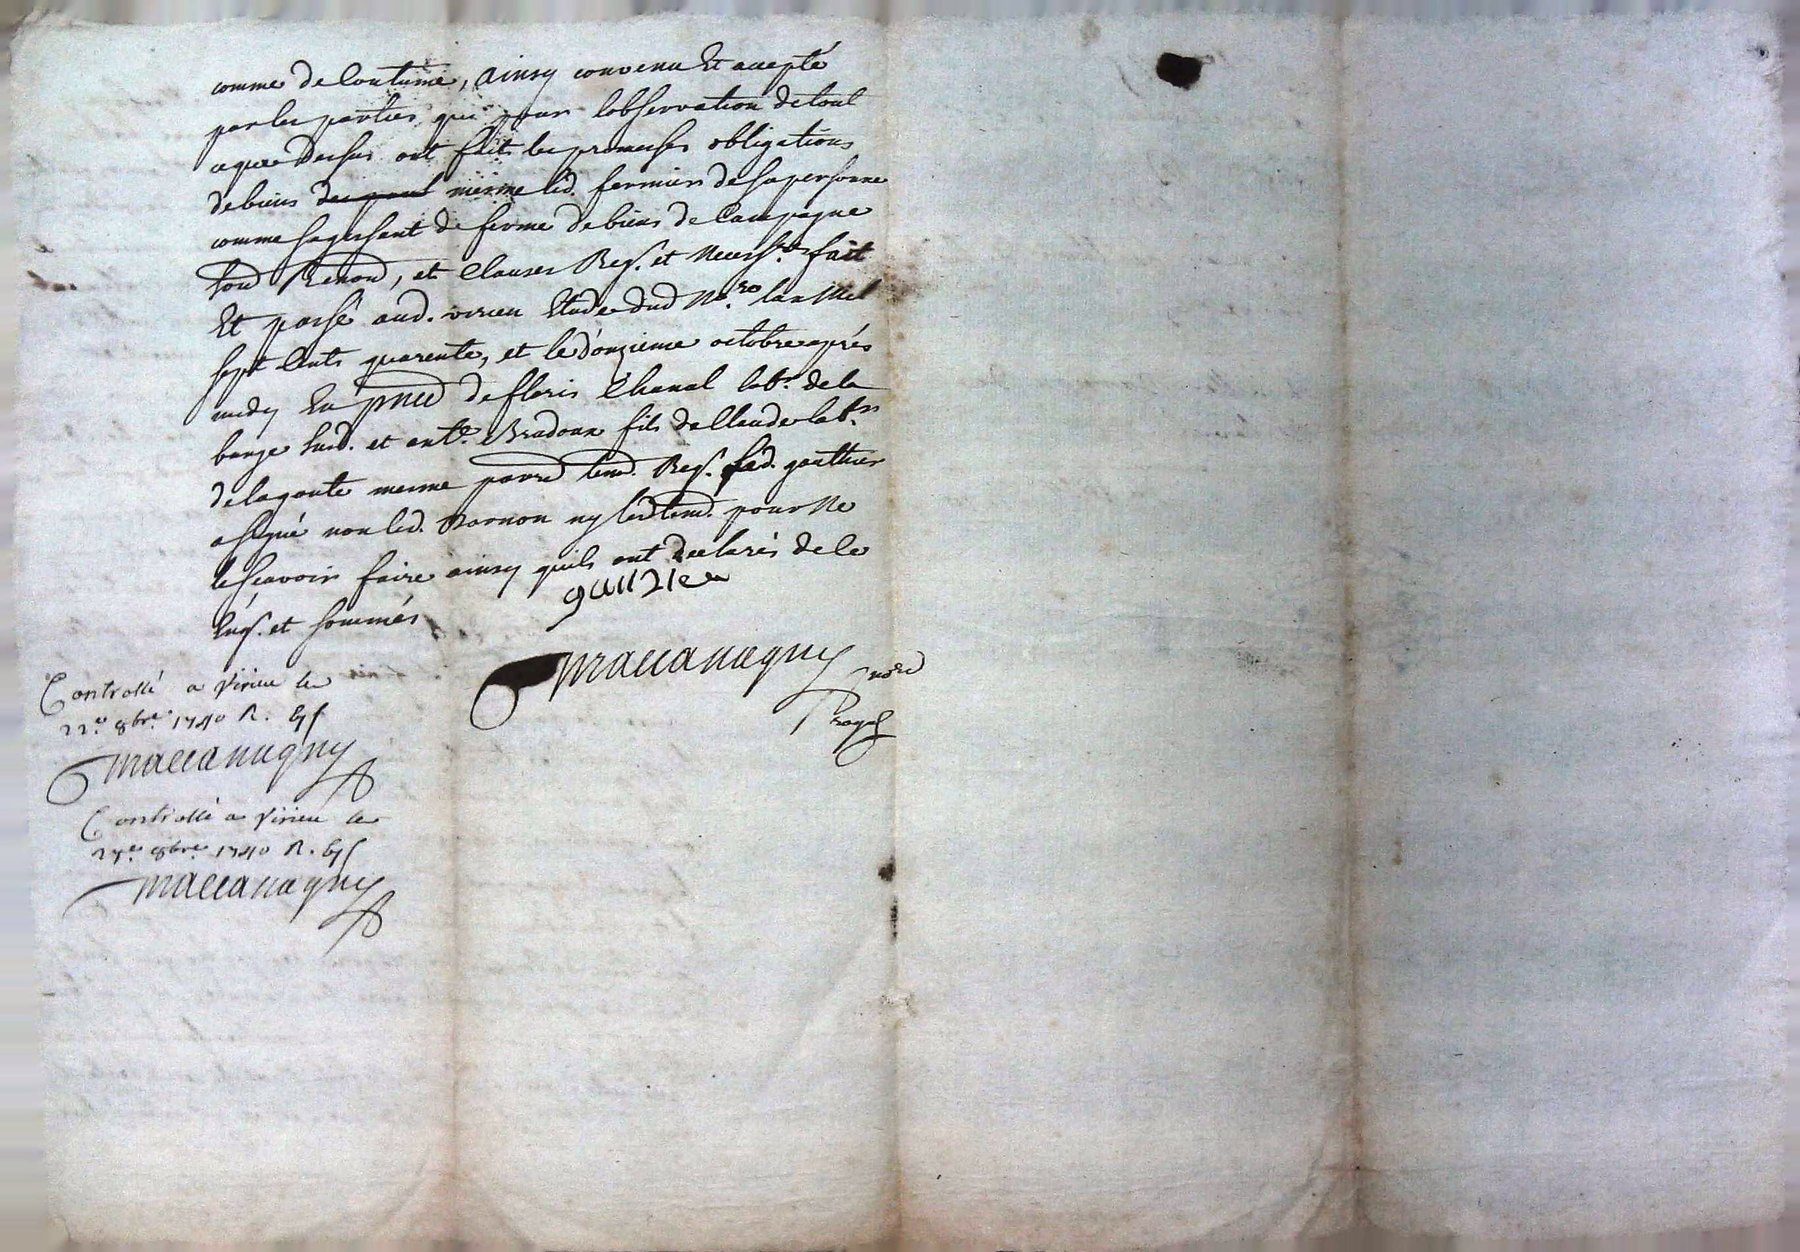 comme de Coutume, ainsy convenu Et accepté
par les parties qui pour lobservation de tout
a que dessus ont fait les promesses obligations
de biens mesme led. fermier de sa personne
comme sagissant de ferme de biens de Campagne
et Clauses Req. et fait
Et passé aud. virieu Etude dud No.re lan Mil
sept Cents quarente, et le donzieme octobre aprés
midy En pnce de fleris Chanal lab.r de la
barge et ant.e Bradoux fils de Claude lab.r
de lagoute mesme Req. led. gauthier
a signé non led. Barnon ny lesd tem. pour Ne
le scavoir faire ainsy quils ont declarés de le
Enq. et sommés
gautier
Maccanagny
no.re
Royal
Controllé a Virieu le
22.e 8bre 1740 R.
Maccanagny
Controllé a Virieu le
8bre 1740 R.
Maccanagny